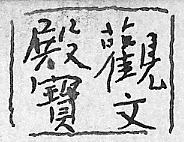 觀文
殿寶